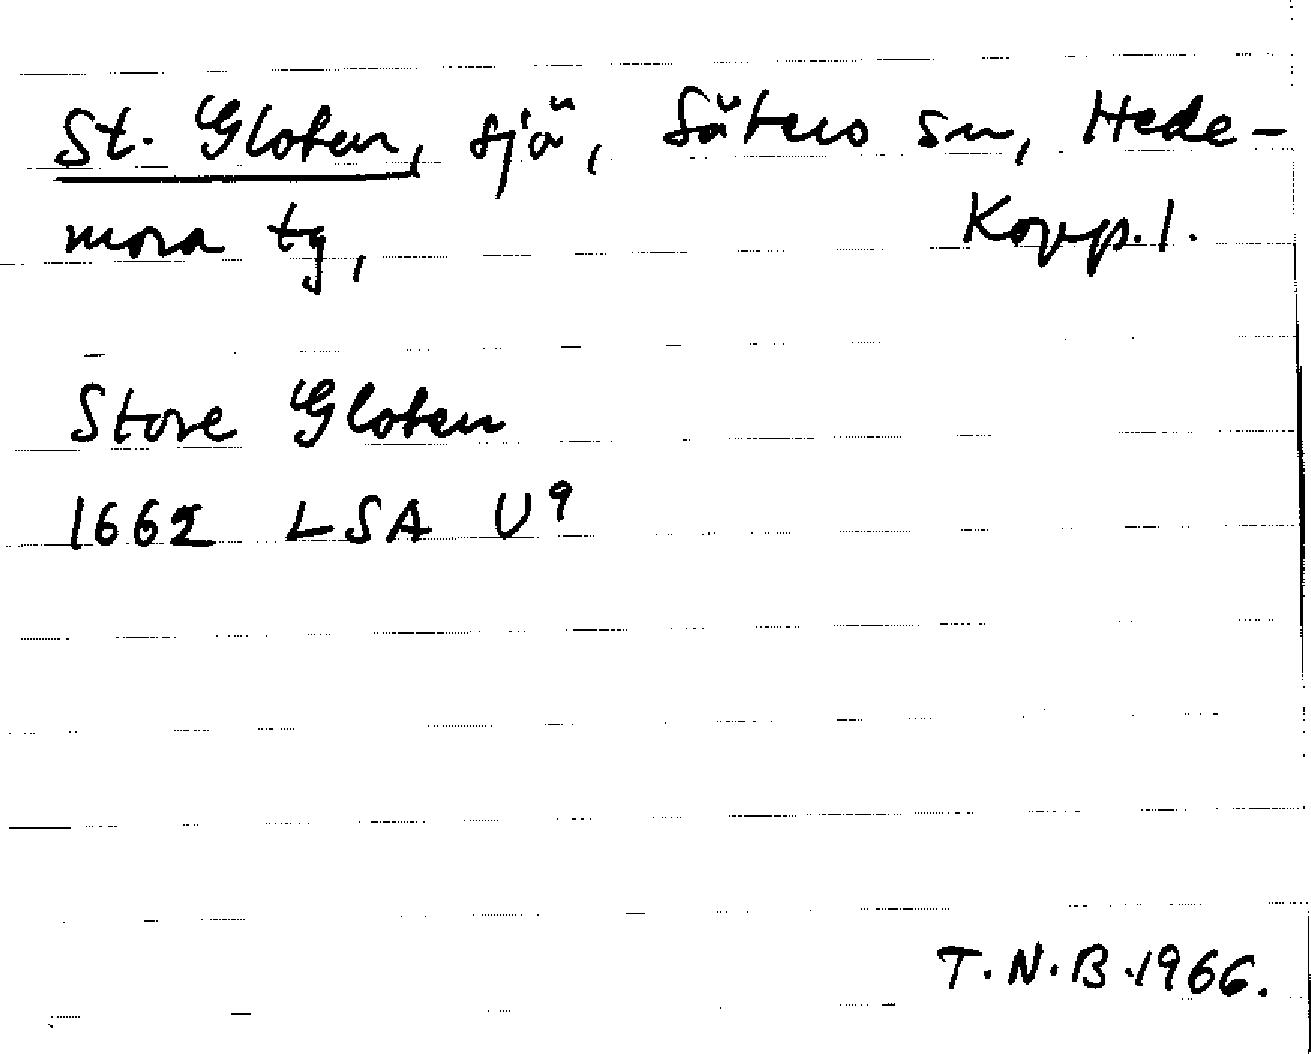 St. Gloten, sjö, Säters sn, Hede-
mora tg, Kopp. l.
Store Gloten
1662 LSA U9
T.N.B. 1966.